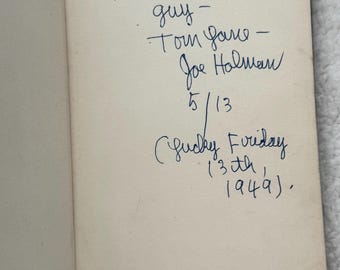 guy—
Tom Lane—
Joe Holman
5/13
(Lucky Friday
13th,
1949).